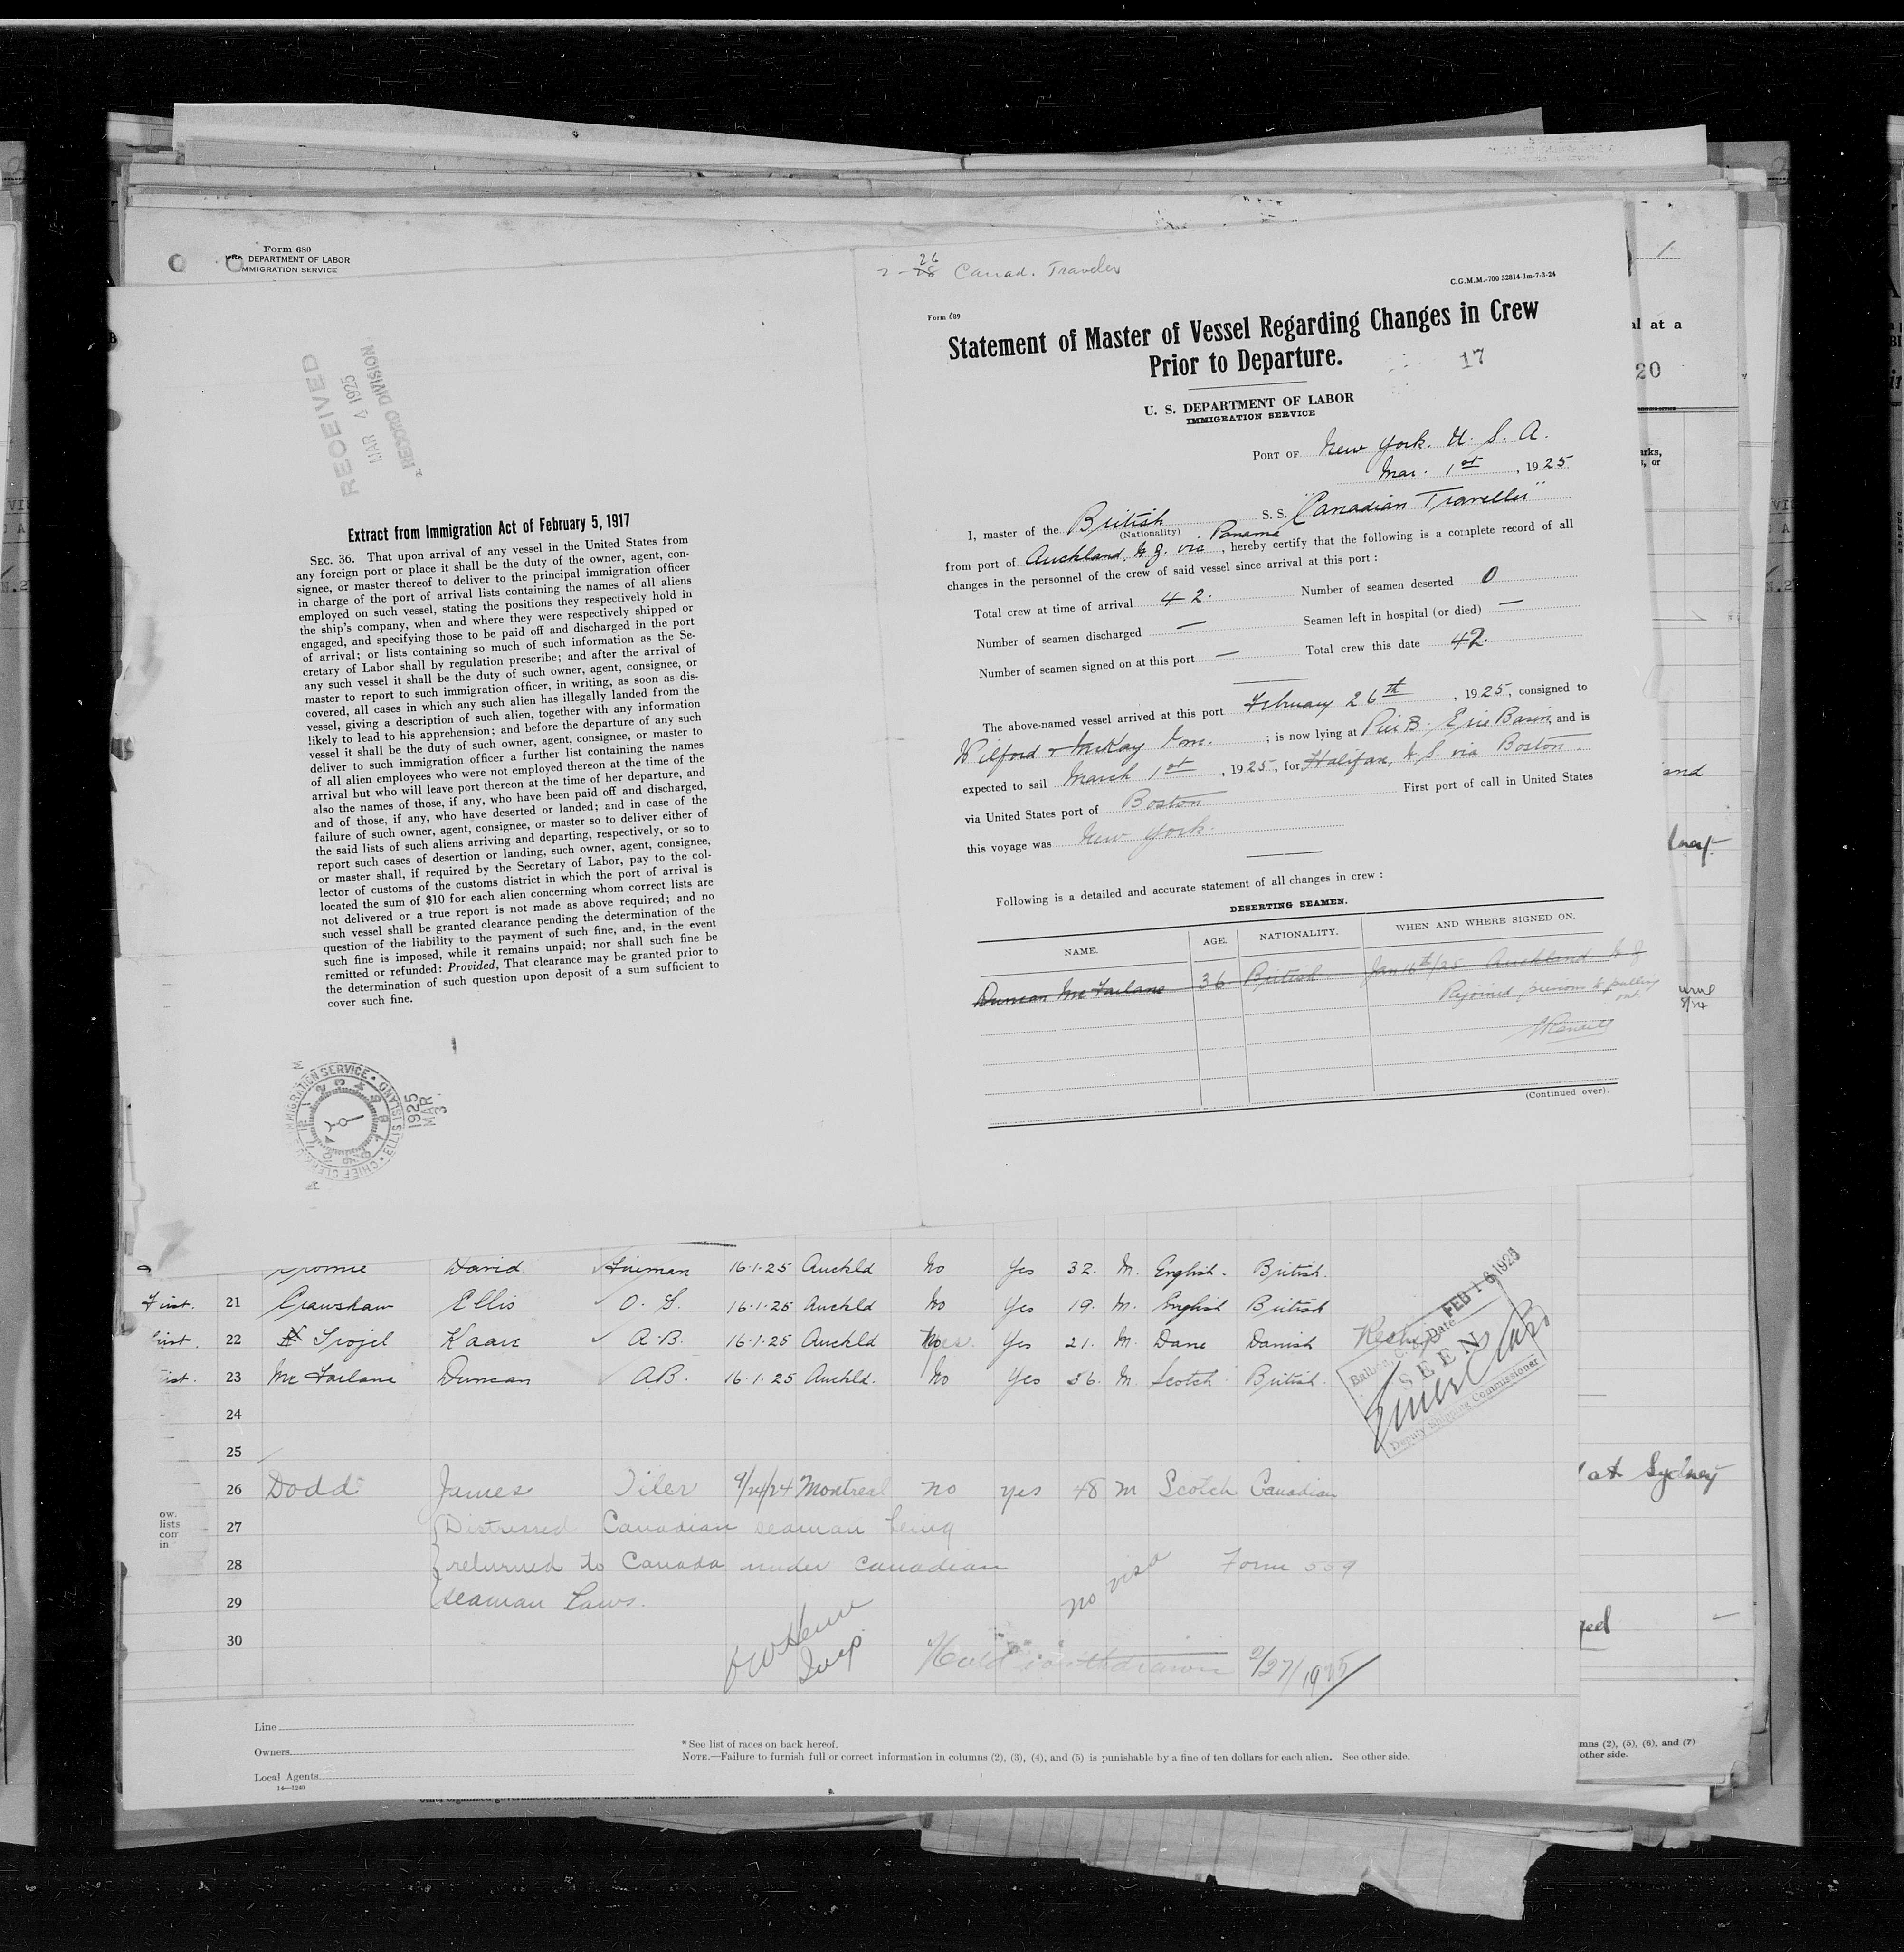 Form 680
DEPARTMENT OF LABOR
IMMIGRATION SERVICE
RECEIVED
MAR 4 1925
RECORD DIVISION
Extract from Immigration Act of February 5, 1917
SEC. 36. That upon arrival of any vessel in the United States from
any foreign port or place it shall be the duty of the owner, agent, con-
signee, or master thereof to deliver to the principal immigration officer
in charge of the port of arrival lists containing the names of all aliens
employed on such vessel, stating the positions they respectively hold in
the ship's company, when and where they were respectively shipped or
engaged, and specifying those to be paid off and discharged in the port
of arrival; or lists containing so much of such information as the Se-
cretary of Labor shall by regulation prescribe; and after the arrival of
any such vessel it shall be the duty of such owner, agent, consignee, or
master to report to such immigration officer, in writing, as soon as dis-
covered, all cases in which any such alien has illegally landed from the
vessel, giving a description of such alien, together with any information
likely to lead to his apprehension; and before the departure of any such
vessel it shall be the duty of such owner, agent, consignee, or master to
deliver to such immigration officer a further list containing the names
of all alien employees who were not employed thereon at the time of the
arrival but who will leave port thereon at the time of her departure, and
also the names of those, if any, who have been paid off and discharged,
and of those, if any, who have deserted or landed; and in case of the
failure of such owner, agent, consignee, or master so to deliver either of
the said lists of such aliens arriving and departing, respectively, or so to
report such cases of desertion or landing, such owner, agent, consignee,
or master shall, if required by the Secretary of Labor, pay to the col-
lector of customs of the customs district in which the port of arrival is
located the sum of $10 for each alien concerning whom correct lists are
not delivered or a true report is not made as above required; and no
such vessel shall be granted clearance pending the determination of the
question of the liability to the payment of such fine, and, in the event
such fine is imposed, while it remains unpaid; nor shall such fine be
remitted or refunded: Provided, That clearance may be granted prior to
the determination of such question upon deposit of a sum sufficient to
cover such fine.
IMMIGRATION SERVICE • ELLIS ISLAND • CHIEF CLERK
1925
MAR
3
26
2-28 Canad. Traveler
C.G.M.M.-700 32814-1m-7-3-24
Form 689
Statement of Master of Vessel Regarding Changes in Crew
Prior to Departure.
17
U. S. DEPARTMENT OF LABOR
IMMIGRATION SERVICE
PORT OF New York. U. S. A.
Mar. 1st, 1925
I, master of the British S. S. "Canadian Traveller"
(Nationality)
from port of Auckland, N.Z. via Panama, hereby certify that the following is a complete record of all
changes in the personnel of the crew of said vessel since arrival at this port:
Total crew at time of arrival 42. Number of seamen deserted 0
Number of seamen discharged — Seamen left in hospital (or died) —
Number of seamen signed on at this port — Total crew this date 42.
The above-named vessel arrived at this port February 26th, 1925, consigned to
Wilford & McKay Inc.; is now lying at Pier B. Erie Basin, and is
expected to sail March 1st, 1925, for Halifax, N.S. via Boston.
via United States port of Boston First port of call in United States
this voyage was New York.
Following is a detailed and accurate statement of all changes in crew:
DESERTING SEAMEN.
NAME. AGE. NATIONALITY. WHEN AND WHERE SIGNED ON.
Duncan McFarlane 36 British Jan 16th/25 Auckland N Z
Rejoined previous to pulling
out
(Continued over).
David Fireman 16.1.25 Auckld No Yes 32. M. English. British.
First. 21 Crawshaw Ellis O. S. 16.1.25 Auckld No Yes 19. M. English British
22 Kaare A.B. 16.1.25 Auckld Yes 21. M. Dane Danish
23 McFarlane Duncan AB. 16.1.25 Auckld. No Yes 36. M. Scotch British.
24
25
26 Dodd James Oiler 9/24/24 Montreal no yes 48 M Scotch Canadian
27 Distressed Canadian seaman being
28 returned to Canada under Canadian Form 559
29 seaman Laws. no visa
30
Insp
Hold withdrawn 2/27/1925
Balboa, C. Z. Date FEB 16 1925
SEEN
Deputy Shipping Commissioner
Line
Owners
Local Agents
14—1240
*See list of races on back hereof.
NOTE.—Failure to furnish full or correct information in columns (2), (3), (4), and (5) is punishable by a fine of ten dollars for each alien. See other side.
al at a
20
at Sydney
mns (2), (5), (6), and (7)
other side.